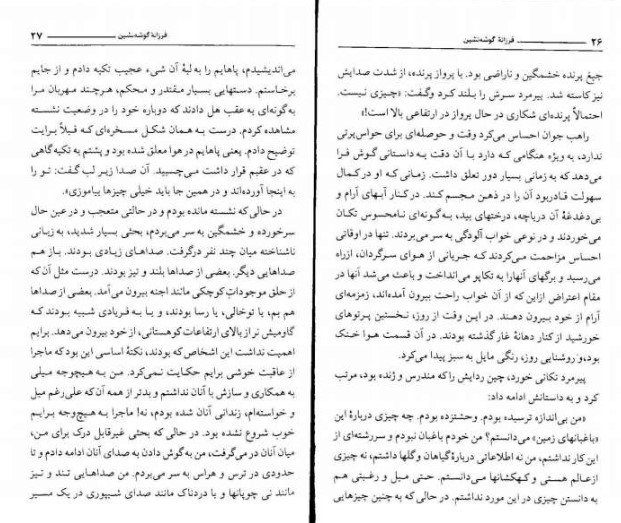 ۲۶ فرزانهٔ گوشه‌نشین
جیغ پرنده خشمگین و ناراضی بود. با پرواز پرنده، از شدت صدایش
نیز کاسته شد. پیرمرد سرش را بلند کرد وگفت: «چیزی نیست.
احتمالاً پرنده‌ای شکاری در حال پرواز در ارتفاعی بالا است!»
راهب جوان احساس می‌کرد وقت و حوصله‌ای برای حواس‌پرتی
ندارد، به ویژه هنگامی که دارد با آن دقت به داستانی گوش فرا
می‌دهد که به زمانی بسیار دور تعلق داشت. زمانی‌که او در کمال
سهولت قادربود آن را در ذهن مجسم کند. در کنار آبهای آرام و
بی‌دغدغهٔ آن دریاچه، درختهای بید، به‌گونه‌ای نامحسوس تکان
می‌خوردند و در نوعی خواب آلودگی به سر می‌بردند. تنها در اوقاتی
احساس مزاحمت می‌کردند که جریانی از هوای سرگردان، ازراه
می‌رسید و برگهای آنهارا به تکاپو می‌انداخت و باعث می‌شد آنها در
مقام اعتراض ازاین که از آن خواب راحت بیرون آمده‌اند، زمزمه‌ای
آرام از خود بیرون دهند. در این وقت از روز، نخستین پرتوهای
خورشید از کنار دهانهٔ غار گذشته بودند. در آن قسمت هوا خنک
بود، و روشنایی روز، رنگی مایل به سبز پیدا می‌کرد.
پیرمرد تکانی خورد، چین ردایش را که مندرس و ژنده بود، مرتب
کرد و به داستانش ادامه داد:
«من بی‌اندازه ترسیده بودم. وحشتزده بودم. چه چیزی دربارهٔ این
«باغبانهای زمین» می‌دانستم؟ من خودم باغبان نبودم و سررشته‌ای از
این کار نداشتم، من نه اطلاعاتی دربارهٔ‌گیاهان وگلها داشتم، نه چیزی
ازعالم هستی و کهکشانها می‌دانستم. حتی میل و رغبتی هم
به دانستن چیزی در این مورد نداشتم. در حالی که به چنین چیزهایی
فرزانهٔ گوشه‌نشین ۲۷
می‌اندیشیدم، پاهایم را به لبهٔ آن شیء عجیب تکیه دادم و از جایم
برخاستم. دستهایی بسیار مقتدر و محکم، هرچند مهربان مرا
به‌گونه‌ای به عقب هل دادند که دوباره خود را در وضعیت نشسته
مشاهده کردم. درست به همان شکل مسخره‌ای که قبلاً برایت
توضیح دادم. یعنی پاهایم در هوا معلق شده بود و پشتم به تکیه‌گاهی
که در عقبم قرار داشت می‌چسبید. آن صدا زیر لب گفت: تو را
به اینجا آورده‌اند و در همین جا باید خیلی چیزها بیاموزی».
در حالی‌که نشسته مانده بودم و در حالتی متعجب و در عین حال
سرخورده و خشمگین به سر می‌بردم، بحثی بسیار شدید، به زبانی
ناشناخته میان چند نفر درگرفت. صداهای زیادی بودند. باز هم
صداهایی دیگر. بعضی از صداها بلند و تیز بودند. درست مثل آن که
از حلق موجودات کوچکی مانند اجنه بیرون می آمد. بعضی از صداها
هم بم، یا توخالی، یا رسا بودند، و یا به فریادی شبیه بودند که
گاومیش نر از بالای ارتفاعات کوهستانی، از خود بیرون می‌دهد. برایم
اهمیت نداشت این اشخاص که بودند، نکتهٔ اساسی این بود که ماجرا
از عاقبت خوشی برایم حکایت نمی‌کرد. من به هیچ‌وجه میلی
به همکاری و سازش با آنان نداشتم و بدتر از همه آن که علی‌رغم میل
و خواسته‌ام، زندانی آنان شده بودم، نه! ماجرا به هیچ‌وجه برایم
خوب شروع نشده بود. در حالی که بحثی غیرقابل درک برای من،
میان آنان در می‌گرفت، من به گوش دادن به صدای آنان ادامه دادم و تا
حدودی در ترس و هراس به سر می‌بردم. من صداهایی تند و تیز
مانند نی چوپانها و یا دردناک مانند صدای شیپوری در یک مسیر